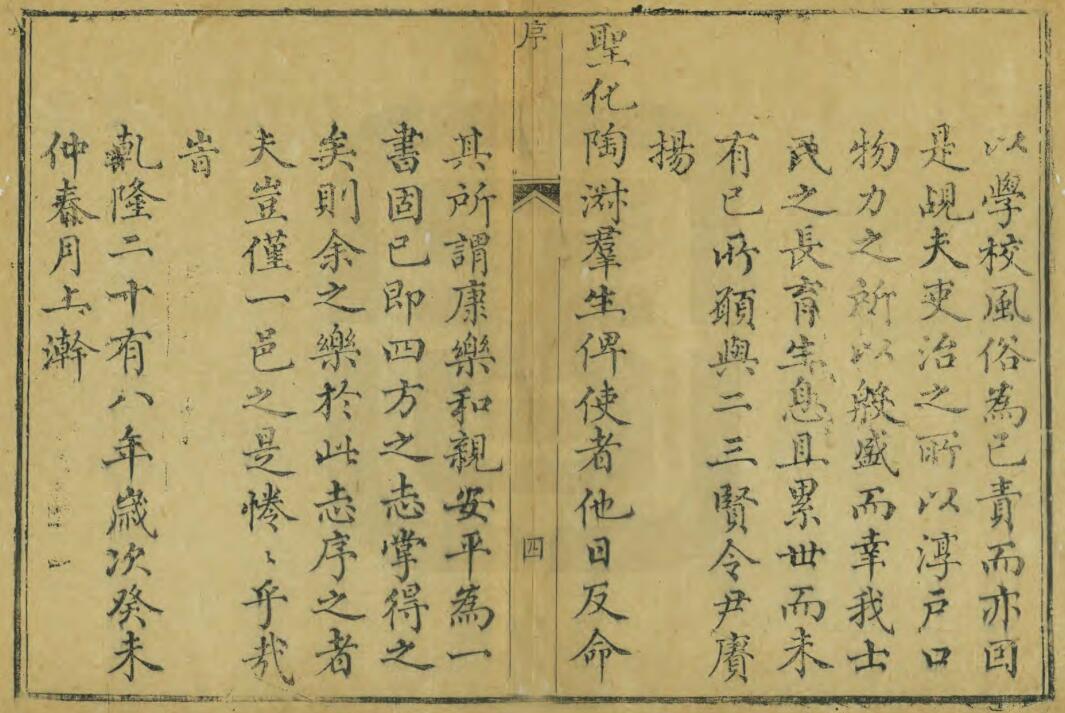 以學校風俗為已責而亦回
是覘夫吏治之所以淳戸口
物力之所以殷盛而幸我士
民之長育生息且累世而未
有已所願與二三賢令尹賡
揚
聖化陶淑羣生俾使者他日反命
序
四
其所謂康樂和親安平為一
書固已即四方之志掌得之
矣則余之樂於此志序之者
夫豈僅一邑之是惓〻乎哉
旹
乹隆二十有八年歲次癸未
仲春月上澣